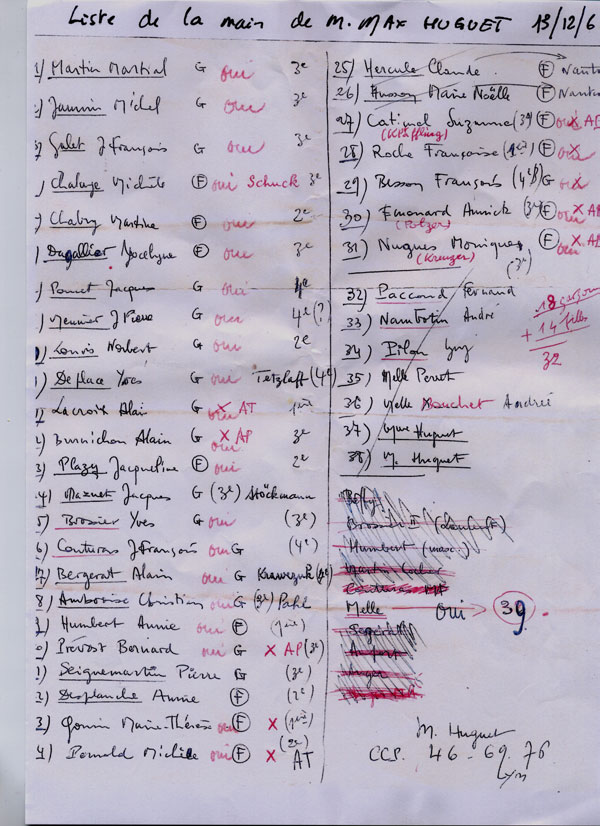 Liste de la main de M. MAX HUGUET 13/12/6
1) Martin Martial G oui 3e
) Jaumin Michel G oui 3e
) Galet J François G oui 3e
) Chalaye Michèle F oui Schuck 3e
) Chabry Martine F oui 2e
) Dugallier Jocelyne F oui 3e
) Poncet Jacques G oui 4e
) Meunier J Pierre G oui 4e (?)
) Louvis Norbert G oui 2e
) Deplace Yves G oui Tetzlaff (4e)
) Lacroix Alain G oui X AT 1ère
) Burnichon Alain G oui X AP 3e
3) Plazy Jacqueline F oui 2e
4) Mazuet Jacques G (3e) Stöckmann
5) Brossier Yves G oui (3e)
6) Couturas J François oui G (4e)
17) Bergerat Alain oui G Krawczyk
8) Ambroise Christian oui G (3e) Pahl
) Humbert Annie oui F (1ère)
0) Prévost Bernard oui G X AP (3e)
1) Seignemartin Pierre G (3e)
2) Desplanche Annie F (2e)
3) Gounin Marie-Thérèse oui F X (1ère)
4) Ponald Michèle oui F X (2e) AT
25) Hercule Claude F Nantu
26) Husson Marie Noëlle F Nantu
27) Catinal Suzanne (3e) F oui X AP
28) Roche Françoise (1ère) F oui X
29) Besson François (4e) G oui X
30) Emonard Annick (3e) F oui X AP
(Polzer)
31) Nugues Monique F oui X AP
(Kreuzer) (3e)
32) Paccoud Fernand
18 garçons
33) Nambotin André
+ 14 filles
34) Pilon Guy
32
35) Melle Perret
36) Melle Bouchet Andrée
37) Mme Huguet
38) M. Huguet
Humbert (masc.)
Melle oui 39
M. Huguet
CCP. 46-69.76
Lyon